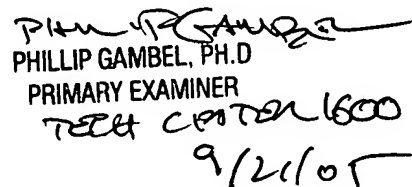 Phillip Gambel
PHILLIP GAMBEL, PH.D
PRIMARY EXAMINER
TECH CENTER 1600
9/21/05